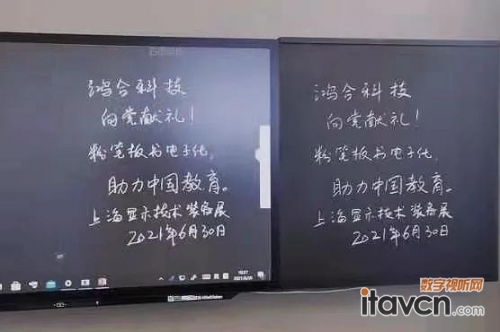 鸿合科技
向党献礼!
粉笔板书电子化,
助力中国教育。
上海显示技术装备展
2021年6月30日
鸿合科技
向党献礼!
粉笔板书电子化,
助力中国教育。
上海显示技术装备展
2021年6月30日
数字视听网
itavcn.com